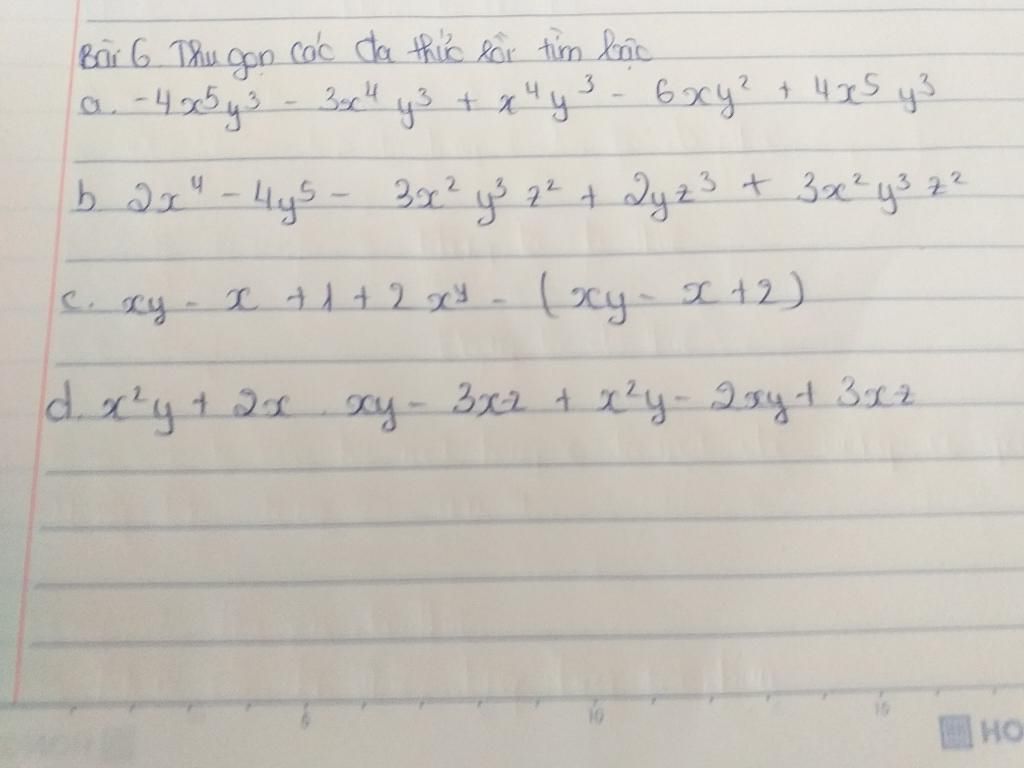 Bài 6 Thu gọn các đa thức rồi tìm bậc
a. -4x⁵y³ - 3x⁴y³ + x⁴y³ - 6xy² + 4x⁵y³
b. 2x⁴ - 4y⁵ - 3x²y³z² + 2yz³ + 3x²y³z²
c. xy - x + 1 + 2xy - (xy - x + 2)
d. x²y + 2x . xy - 3xz + x²y - 2xy + 3xz
5 10 15
HO